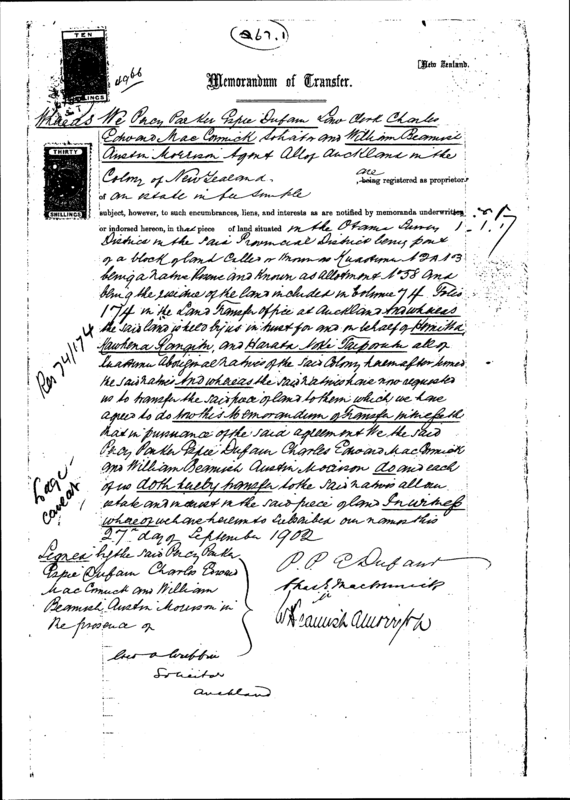 267.1
TEN
SHILLINGS
4966
[New Zealand.
Memorandum of Transfer.
Whereas We Percy Parker Espie Dufaur Law Clerk Charles
Edward MacCormick Solicitor and William Beamish
Austin Morrison Agent All of Auckland in the
Colony of New Zealand
are
being registered as proprietor
THIRTY
SHILLINGS
of an estate in fee simple
subject, however, to such encumbrances, liens, and interests as are notified by memoranda underwritten
or indorsed hereon, in that piece of land situated in the Otama Survey
District in the said Provincial District being part
of a block of land Called or known as Kuaotunu
being a Native Reserve and known as allotment No 38 and
being the residue of the land included in Volume 74 Folio
174 in the Land Transfer office at Auckland And whereas
the said land is held by us in trust for and on behalf of
and Harata all of
Kuaotunu Aboriginal natives of the said Colony hereinafter termed
the said natives And whereas the said natives have now requested
us to transfer the said piece of land to them which we have
agreed to do Now this Memorandum of Transfer witnesseth
that in pursuance of the said agreement We the said
Percy Parker Espie Dufaur Charles Edward MacCormick
and William Beamish Austin Morrison do and each
of us doth hereby transfer to the said natives all our
estate and interest in the said piece of land In witness
whereof we have hereunto subscribed our names this
27th day of September 1902
Res 74/174
Lodge
caveat
Signed by the said Percy Parker
Espie Dufaur Charles Edward
MacCormick and William
Beamish Austin Morrison in
the presence of
P. P. E Dufaur
Chas E MacCormick
W Beamish A Morrison
Solicitor
Auckland